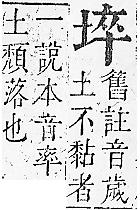 㙮
舊註音歲
土不黏者
一說本音率
土頹落也